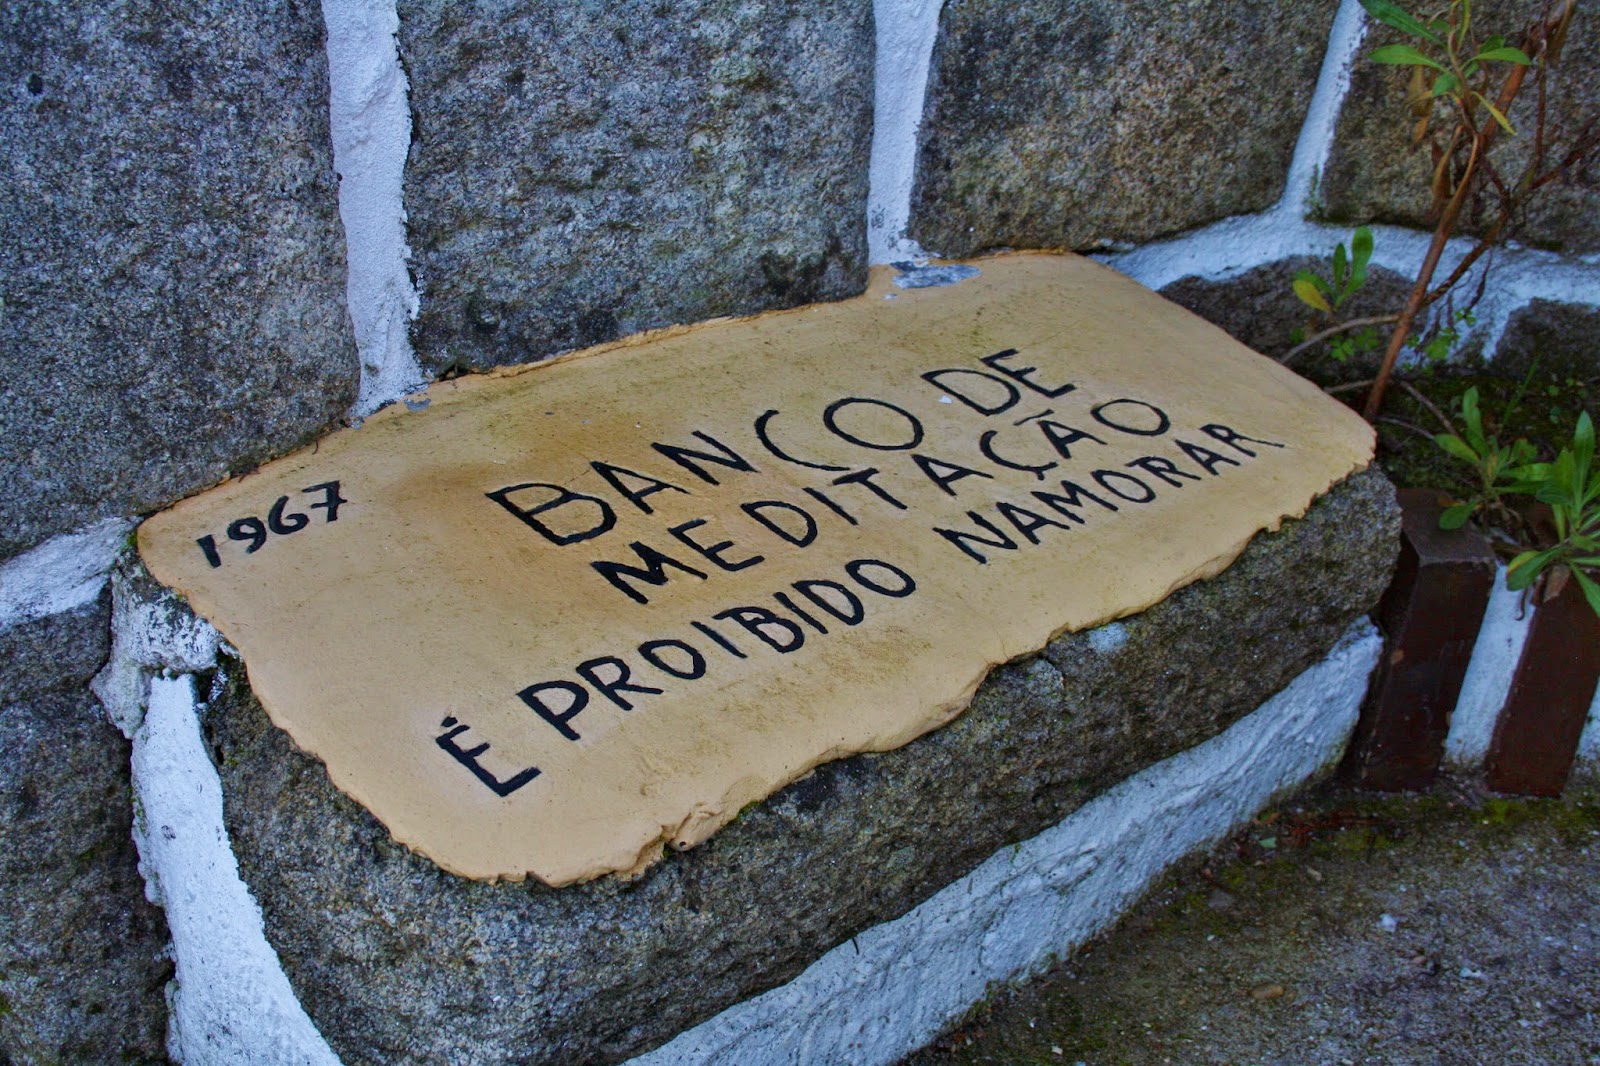 1967
BANCO DE
MEDITAÇÃO
É PROIBIDO NAMORAR